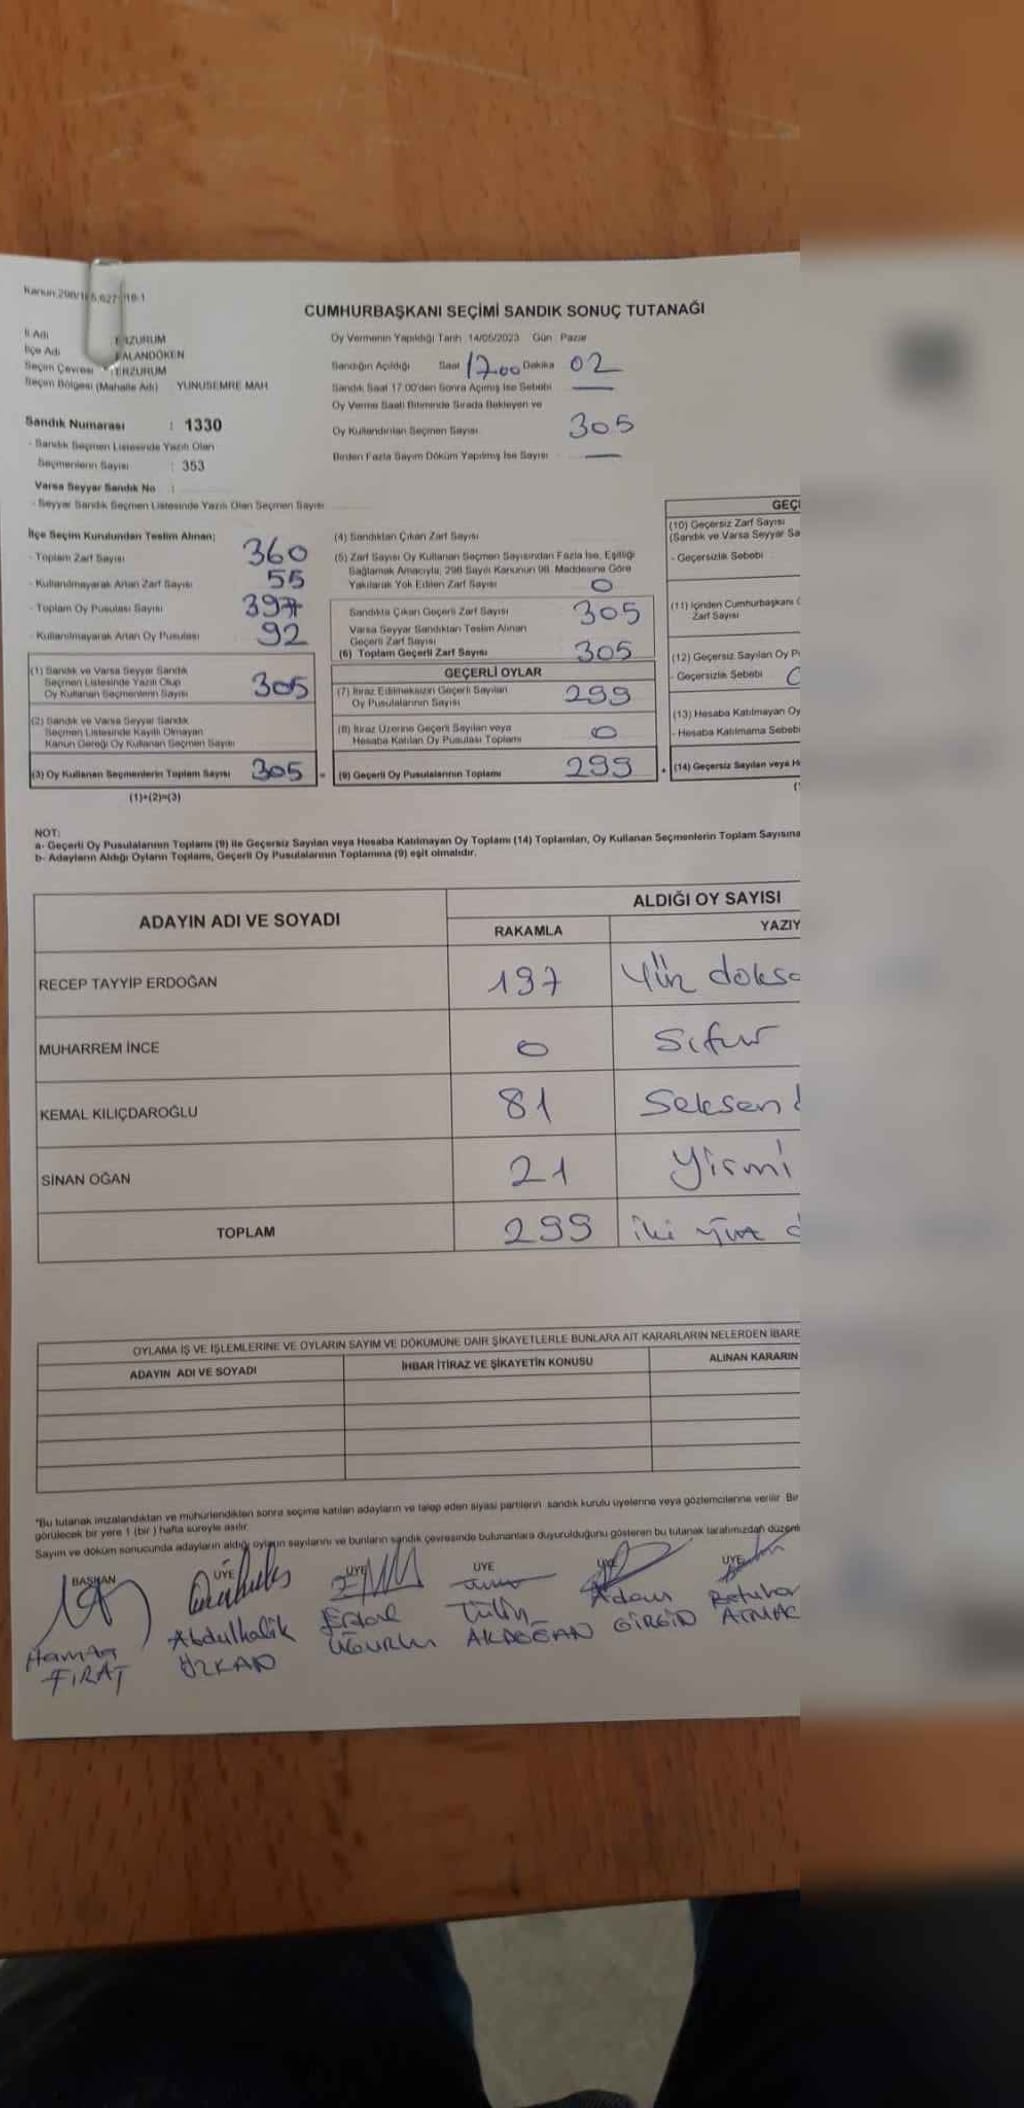 CUMHURBAŞKANI SEÇİMİ SANDIK SONUÇ TUTANAĞI
İl Adı : ERZURUM
İlçe Adı PALANDÖKEN
Seçim Çevresi ERZURUM
Seçim Bölgesi (Mahalle Adı) YUNUSEMRE MAH
Sandık Numarası : 1330
- Sandık Seçmen Listesinde Yazılı Olan
Seçmenlerin Sayısı : 353
Varsa Seyyar Sandık No :
- Seyyar Sandık Seçmen Listesinde Yazılı Olan Seçmen Sayısı
Oy Vermenin Yapıldığı Tarih 14/05/2023 Gün : Pazar
Sandığın Açıldığı Saat 17.00 Dakika 02
Sandık Saat 17.00'den Sonra Açılmış İse Sebebi
Oy Verme Saati Bitiminde Sırada Bekleyen ve
Oy Kullandırılan Seçmen Sayısı 305
Birden Fazla Sayım Döküm Yapılmış İse Sayısı
İlçe Seçim Kurulundan Teslim Alınan;
- Toplam Zarf Sayısı 360
- Kullanılmayarak Artan Zarf Sayısı 55
- Toplam Oy Pusulası Sayısı 397
- Kullanılmayarak Artan Oy Pusulası 92
(1) Sandık ve Varsa Seyyar Sandık
Seçmen Listesinde Yazılı Olup
Oy Kullanan Seçmenlerin Sayısı 305
(2) Sandık ve Varsa Seyyar Sandık
Seçmen Listesinde Kayıtlı Olmayan
Kanun Gereği Oy Kullanan Seçmen Sayısı
(3) Oy Kullanan Seçmenlerin Toplam Sayısı 305 =
(1)+(2)=(3)
(4) Sandıktan Çıkan Zarf Sayısı
(5) Zarf Sayısı Oy Kullanan Seçmen Sayısından Fazla İse, Eşitliği
Sağlamak Amacıyla, 298 Sayılı Kanunun 98. Maddesine Göre
Yakılarak Yok Edilen Zarf Sayısı 0
Sandıkta Çıkan Geçerli Zarf Sayısı 305
Varsa Seyyar Sandıktan Teslim Alınan
Geçerli Zarf Sayısı
(6) Toplam Geçerli Zarf Sayısı 305
GEÇERLİ OYLAR
(7) İtiraz Edilmeksizin Geçerli Sayılan
Oy Pusulalarının Sayısı 299
(8) İtiraz Üzerine Geçerli Sayılan veya
Hesaba Katılan Oy Pusulası Toplamı 0
(9) Geçerli Oy Pusulalarının Toplamı 299
(10) Geçersiz Zarf Sayısı
(Sandık ve Varsa Seyyar
- Geçersizlik Sebebi
(11) İçinden Cumhurbaşkanı
Zarf Sayısı
(12) Geçersiz Sayılan Oy
- Geçersizlik Sebebi
(13) Hesaba Katılmayan Oy
- Hesaba Katılmama Sebebi
(14) Geçersiz Sayılan veya
NOT:
a- Geçerli Oy Pusulalarının Toplamı (9) ile Geçersiz Sayılan veya Hesaba Katılmayan Oy Toplamı (14) Toplamları, Oy Kullanan Seçmenlerin Toplam Sayısına
b- Adayların Aldığı Oyların Toplamı, Geçerli Oy Pusulalarının Toplamına (9) eşit olmalıdır.
ADAYIN ADI VE SOYADI
ALDIĞI OY SAYISI
RAKAMLA YAZIY
RECEP TAYYİP ERDOĞAN 197 Yüz doksa
MUHARREM İNCE 0 Sıfır
KEMAL KILIÇDAROĞLU 81 Seksen
SİNAN OĞAN 21 Yirmi
TOPLAM 299 iki yüz d
OYLAMA İŞ VE İŞLEMLERİNE VE OYLARIN SAYIM VE DÖKÜMÜNE DAİR ŞİKAYETLERLE BUNLARA AİT KARARLARIN NELERDEN İBARE
ADAYIN ADI VE SOYADI İHBAR İTİRAZ VE ŞİKAYETİN KONUSU ALINAN KARARIN
"Bu tutanak imzalandıktan ve mühürlendikten sonra seçime katılan adayların ve talep eden siyasi partilerin sandık kurulu üyelerine veya gözlemcilerine verilir. Bir
görülecek bir yere 1 (bir) hafta süreyle asılır.
Sayım ve döküm sonucunda adayların aldığı oyların sayılarını ve bunların sandık çevresinde bulunanlara duyurulduğunu gösteren bu tutanak tarafımızdan
BAŞKAN ÜYE ÜYE ÜYE ÜYE
Hamza Abdulhalik Erdal Tülin Adem
FIRAT ÖZKAN UĞURLU AKDOĞAN GİRGİN